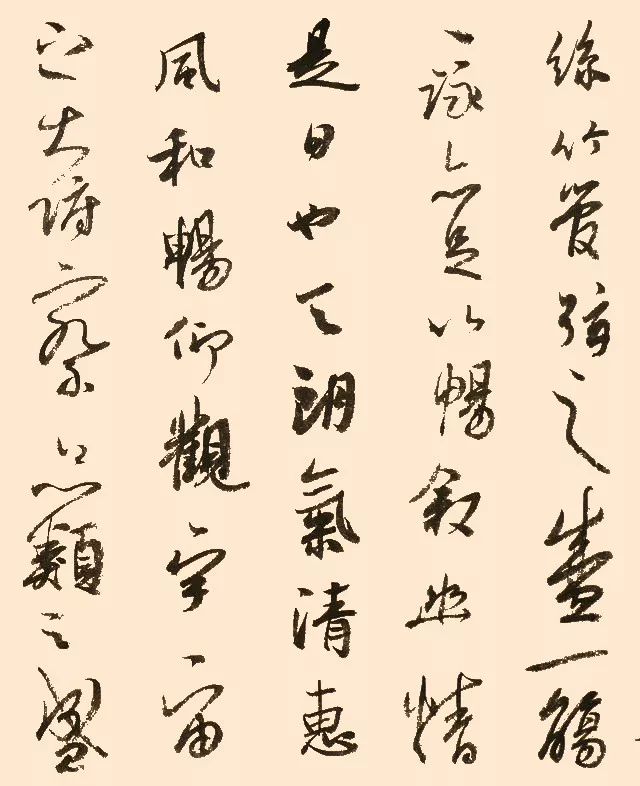 絲竹管弦之盛一觴
一詠亦足以暢敘幽情
是日也天朗氣清惠
風和暢仰觀宇宙
之大俯察品類之盛